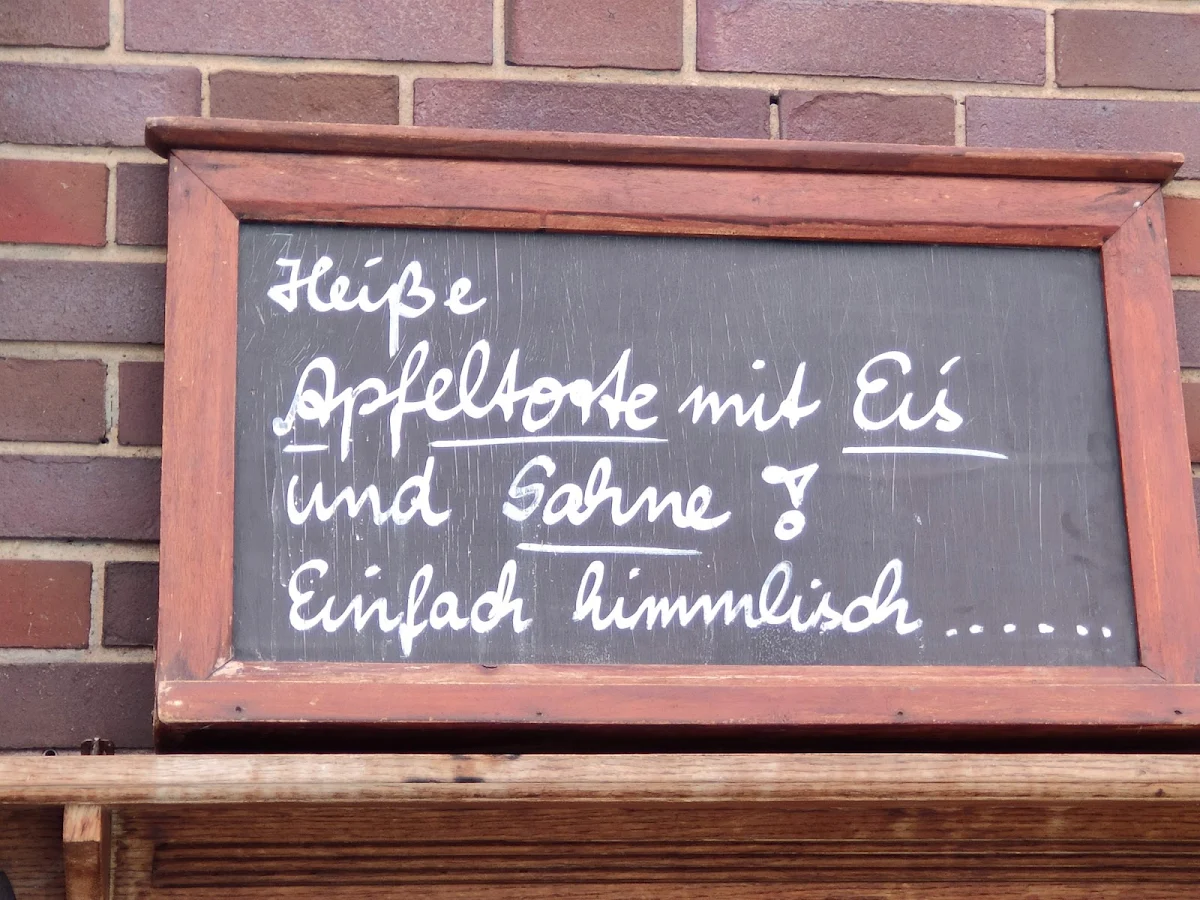 Heiße
Apfeltorte mit Eis
und Sahne!
Einfach himmlisch ......